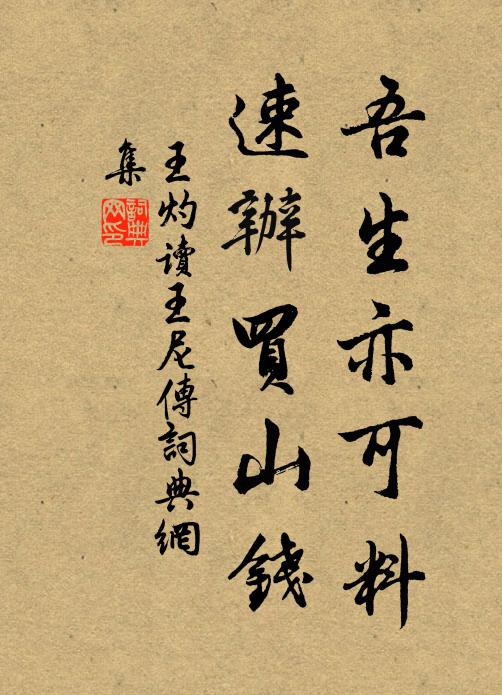 吾生亦可料
速辦買山錢
王灼讀王尼傳詞典網
集
詞典網印